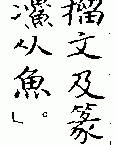 籀文及篆
从魚」。